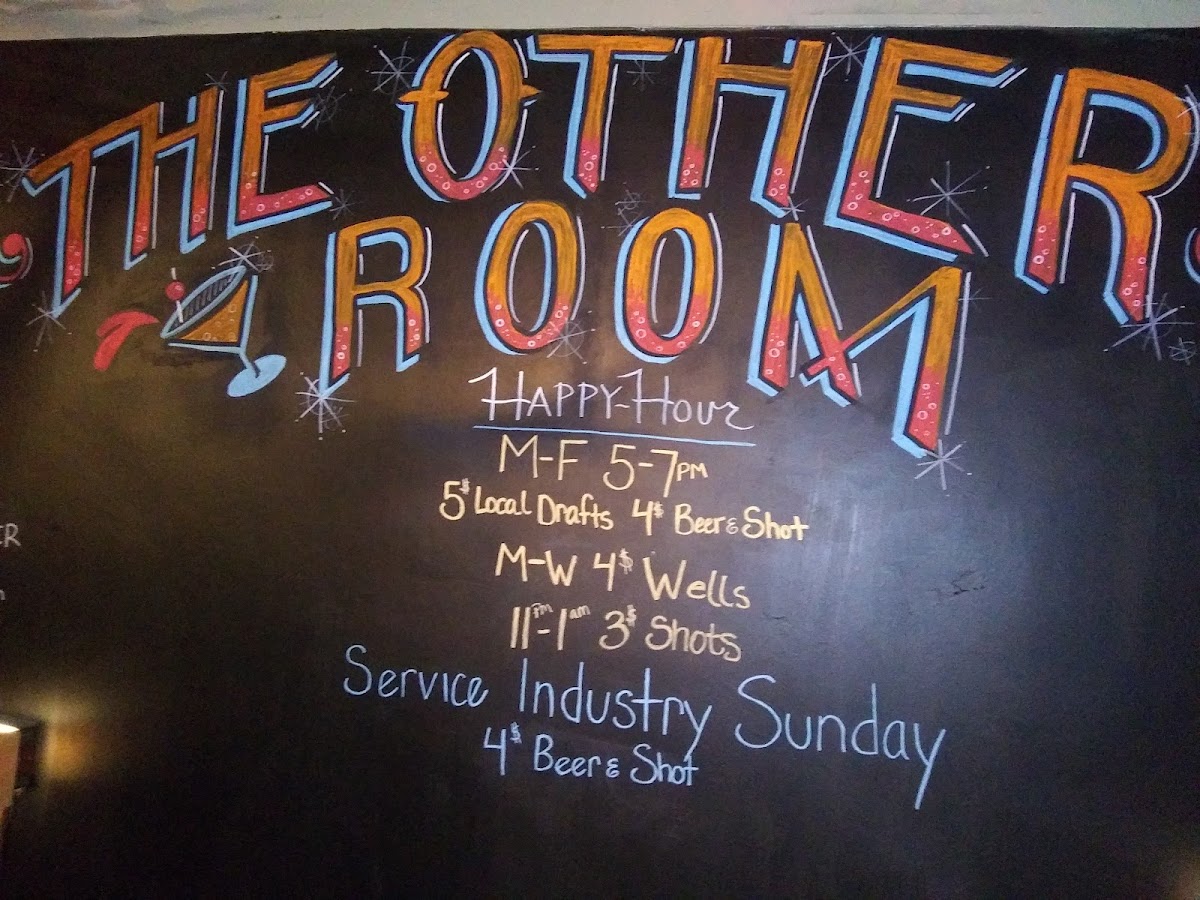 THE OTHER
ROOM
HAPPY-HOUR
M-F 5-7PM
5$ Local Drafts 4$ Beer & Shot
M-W 4$ Wells
11pm-1am 3$ Shots
Service Industry Sunday
4$ Beer & Shot